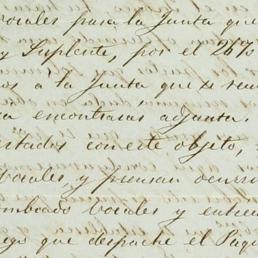 vocales para la Junta que
y Suplente, por el 26%
os a la Junta que se reu
a encontrarás adjunta.
citados con este objeto,
vocales, y piensan ocurri
ombrado vocales y entre
ego que despache el Paq